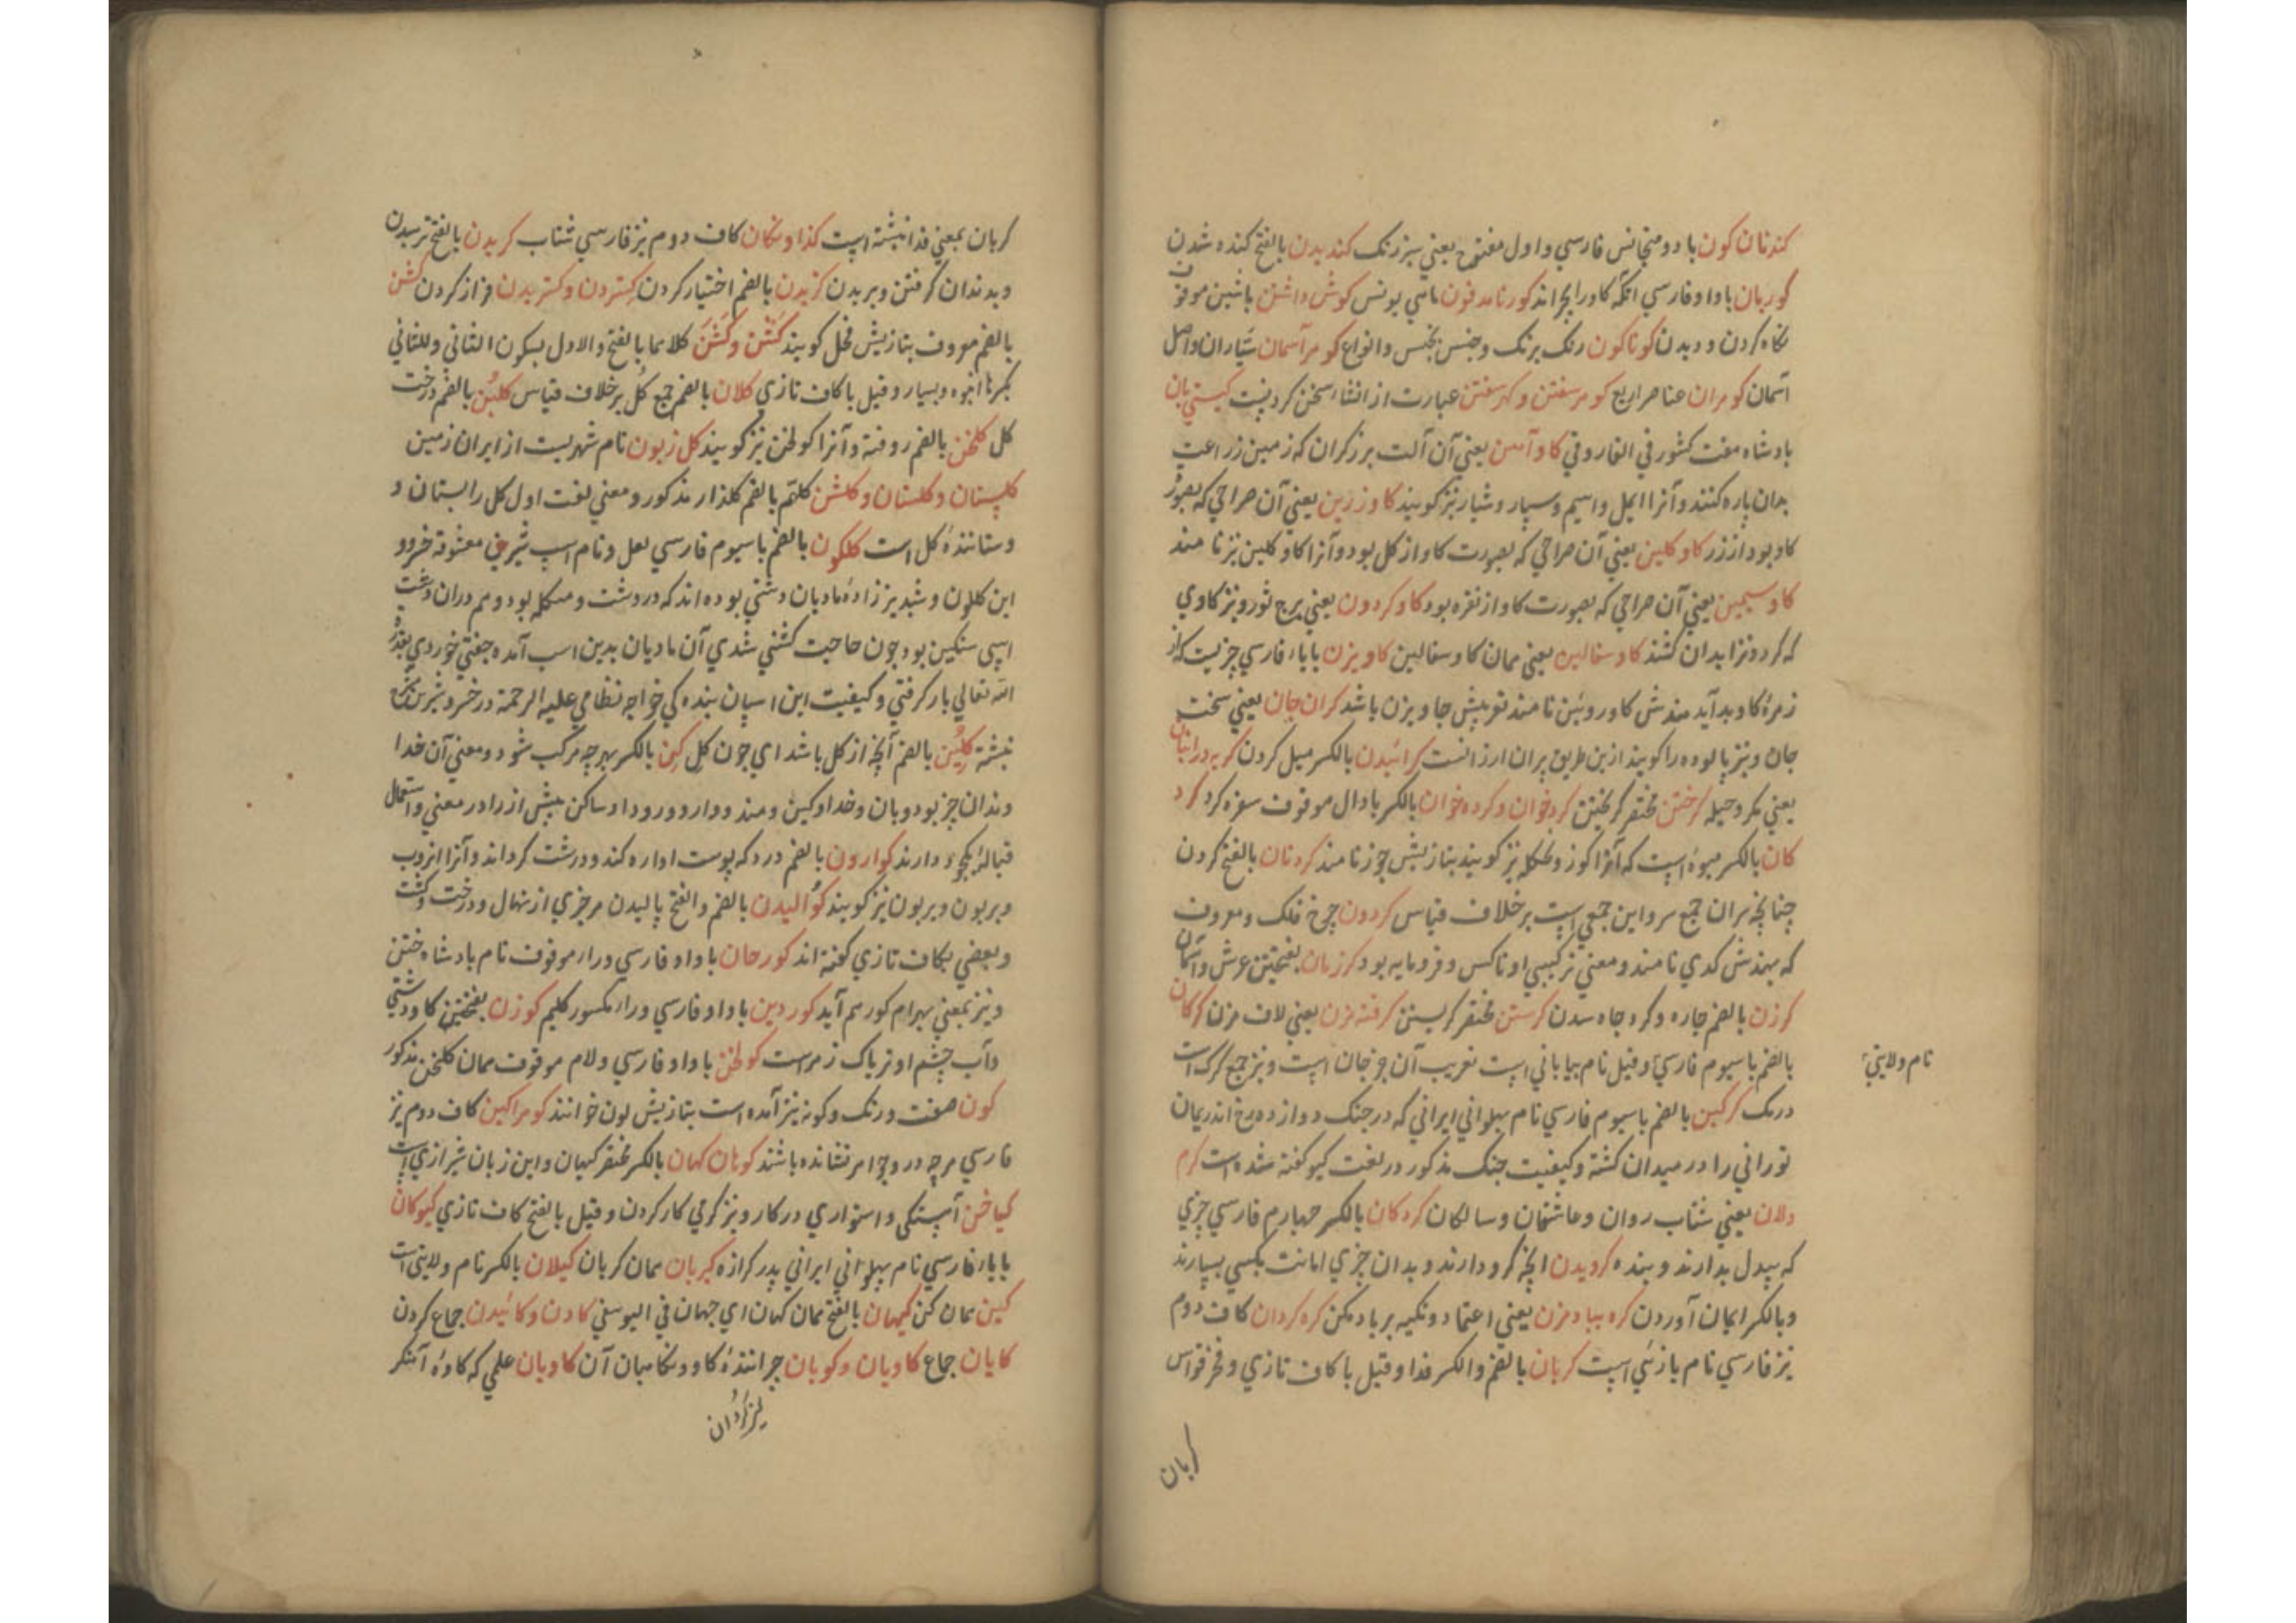 کندنان کون با دو متجانس فارسي و اول مفتوح یعني سبز رنک کندیدن بالفتح کنده شدن
کوربان با واو فارسي انکه کاو را بچراند کورنامدفون ماهي یونس کوش داشتن باشین موقوف
نکاه کردن و دیدن کوناکون رنک برنک و جنس بجنس و انواع کوهر آسمان ستاران و اصل
آسمان کوهران عناصر اربع کوهر سفتن و کهر سفتن عبارت از انشاء سخن کردنست کیستي بان
بادشاه هفت کشور في الفاروقي کاو آهن یعني آن آلت برزکران که زمین زراعت
بدان پاره کنند و آنرا ایمل و اسیم و سپار و شیار نیز کویند کاو زرین یعني آن صراحي که بصورت
کاو بود از زر کاو کلین یعني آن صراحي که بصورت کاو از کل بود و آنرا کاو کلین نیز نامند
کاو سیمین یعني آن صراحي که بصورت کاو از نقره بود کاو کردون یعني برج ثور و نیز کاوي
که کردونرا بدان کشند کاو سفالین یعني همان کاو سفالین کاویزن با باء فارسي چیزیست که از
زهرهٔ کاو بدآید هندش کاو روئین نامند تعریبش جاویزن باشد کران جان یعني سخت
جان و نیز پالوده را کویند ازین طریق پران ارزانست کرائیدن بالکسر میل کردن کربه در انبان
یعني مکر و حیله کرختن مختصر کریختن کردخوان و کرده خوان بالکسر با دال موقوف سفره کرد کرد
کان بالکسر میوه است که آنرا کوز و کنکله نیز کویند بتازیش جوز نامند کردنان بالفتح کردن
چنانچه سران جمع سر و این جمعي است برخلاف قیاس کردون چرخ فلک و معروف
که بهندش کدي نامند و معني ترکیبي او ناکس و فرومایه بود کرزمان بفتحتین عرش و آسمان
کرزن بالضم چاره و کرد جاه سدن کرستن مختصر کریستن کرفته مزن یعني لاف مزن کرکان
بالضم با سیوم فارسي و قیل نام بیاباني است تعریب آن جرجان است و نیز جمع کرک است
نام ولایتي
درمک کرکین بالضم با سیوم فارسي نام پهلواني ایراني که در جنک دوازده رخ اندریمان
توراني را در میدان کشته و کیفیت جنک مذکور در لغت کیو کفته شده است کرم
دلان یعني شتاب روان و عاشقان و سالکان کردکان بالکسر چهارم فارسي چیزي
که بیدل بدارند و بنده کرویدن انچه کرو دارند و بدان چیزي امانت بکسي بسپارند
و بالکسر ایمان آوردن کره بباد مزن یعني اعتماد و تکیه بر باد مکن کره کردان کاف دوم
نیز فارسي نام بازئي است کربان بالضم والکسر فدا و قیل با کاف تازي و فخر قواس
کربان
کربان بمعني فدا نبشته است کذاونکان کاف دوم نیز فارسي شتاب کریدن بالفتح ترسیدن
و بدندان کرفتن و بریدن کزیدن بالضم اختیار کردن کستردن و کستریدن فراز کردن کشن
بالضم معروف بتازیش فحل کویند کشن و کشن کلاهما بالفتح والاول بسکون الثاني وللثاني
بکسرها انبوه و بسیار و قیل با کاف تازي کلان بالضم جمع کل برخلاف قیاس کلبن بالضم درخت
کل کلخن بالضم روفته و آنرا کولخن نیز کویند کل زیون نام شهریست از ایران زمین
کلپستان و کلستان و کلشن کلهم بالضم کلذار مذکور و معني لغت اول کل را بستان و
و ستاننده کل است کلکون بالضم با سیوم فارسي لعل و نام اسپ شیرین معشوقه خسرو
این کلکون و شبدیز زادهٔ مادیان دشتي بوده اند که در دشت و منکله بود و هم دران دشت
اسپي سنکین بود چون حاجت کشني شدي آن مادیان بدین اسب آمده جفتي خوردي بقدرة
الله تعالي بار کرفتي و کیفیت این اسپان بنده کي خواجه نظامي علیه الرحمة در خسرو شیرین
نبشته کلین بالضم آنچه از کل باشد اي چون کل کین بالکسر بهرچه مرکب شود و معني آن خدا
وندان چیز بود و بان و خداوکین و مند و وار و ور و داو ساکن پیش از را در معني و استعمال
قباله یکجو دارند کوارون بالضم درد که پوست اواره کند و درشت کرداند و آنرا انزوب
و بریون و بربون نیز کویند کوالیدن بالضم والفتح بالیدن هر چیزي از نهال و درخت و کشت
و بعضي بکاف تازي کفته اند کورخان با واو فارسي و راء موقوف نام بادشاه ختن
و نیز بمعني بهرام کور هم آید کوردین با واو فارسي و راء مکسور کلیم کوزن بفتحتین کاو دشتي
و آب چشم او تریاک زهر است کولخن با واو فارسي و لام موقوف همان کلخن مذکور
کون صفت و رنک و کونه نیز آمده است بتازیش لون خوانند کوهرآکین کاف دوم نیز
فارسي هرچه درو جواهر نشانده باشند کوهان کهان بالکسر مختصر کیهان و این زبان شیرازي است
کیاخن آهستکي و استواري در کار و نیز کرمي کار کردن و قیل بالفتح کاف تازي کیوکان
با باء فارسي نام پهلواني ایراني پدر کرازه کیربان همان کربان کیلان بالکسر نام ولایتي است
کین همان کن کیهان بالفتح همان کهان اي جهان في الیوسفي کادن و کائیدن جماع کردن
کایان جماع کاویان و کوبان چرانندهٔ کاو و نکاهبان آن کاویان علمي که کاوهٔ آهنکر